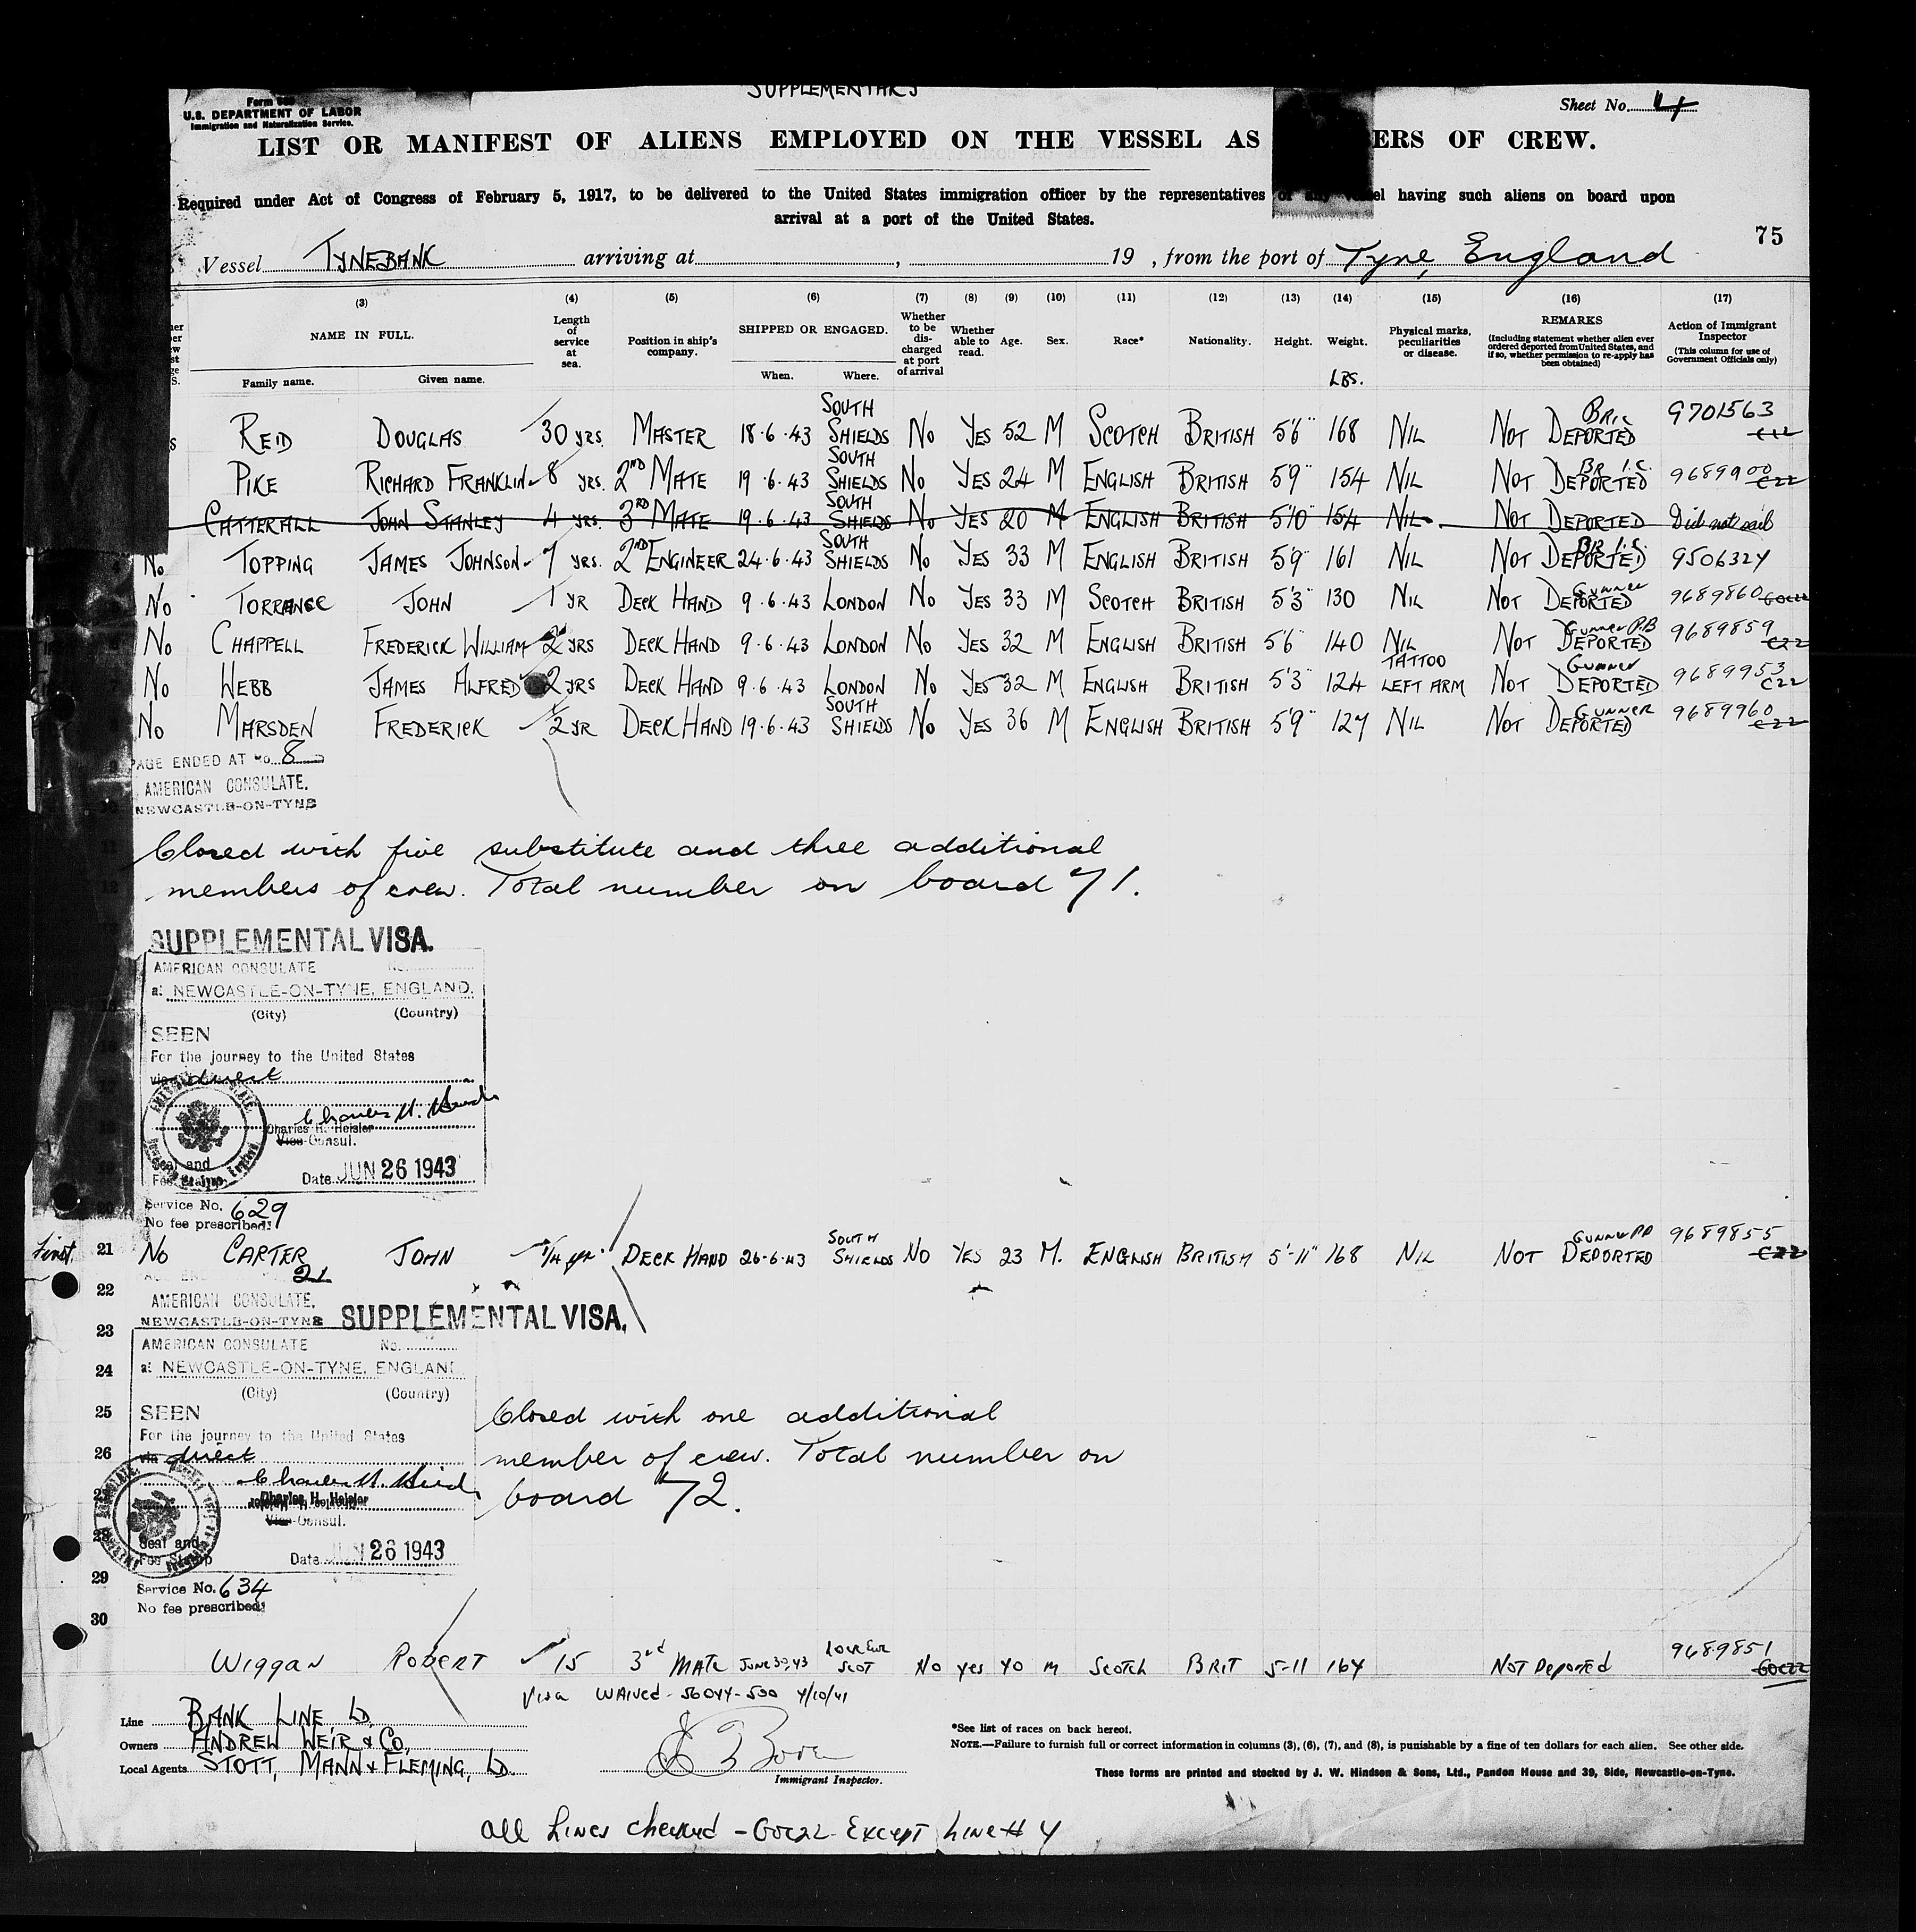 SUPPLEMENTARY
Form 689
U.S. DEPARTMENT OF LABOR
Immigration and Naturalization Service.
Sheet No. 4
LIST OR MANIFEST OF ALIENS EMPLOYED ON THE VESSEL AS ERS OF CREW.
Required under Act of Congress of February 5, 1917, to be delivered to the United States immigration officer by the representatives of any vessel having such aliens on board upon
arrival at a port of the United States.
75
Vessel TYNEBANK arriving at , 19 , from the port of Tyne, England
(3) (4) (5) (6) (7) (8) (9) (10) (11) (12) (13) (14) (15) (16) (17)
NAME IN FULL. Family name. Given name.
Length of service at sea.
Position in ship's company.
SHIPPED OR ENGAGED. When. Where.
Whether to be discharged at port of arrival
Whether able to read.
Age.
Sex.
Race*
Nationality.
Height.
Weight. LBS.
Physical marks, peculiarities or disease.
REMARKS (Including statement whether alien ever ordered deported from United States, and if so, whether permission to re-apply has been obtained)
Action of Immigrant Inspector (This column for use of Government Officials only)
REID DOUGLAS 30 YRS. MASTER 18·6·43 SOUTH SHIELDS No YES 52 M SCOTCH BRITISH 5'6" 168 NIL NOT DEPORTED 9701563
PIKE RICHARD FRANKLIN 8 YRS. 2ND MATE 19·6·43 SOUTH SHIELDS No YES 24 M ENGLISH BRITISH 5'9" 154 NIL NOT DEPORTED BR I.C. 9689900 C22
CATTERALL JOHN STANLEY 4 YRS. 3RD MATE 19·6·43 SOUTH SHIELDS No YES 20 M ENGLISH BRITISH 5'10" 154 NIL NOT DEPORTED Did not sail
No TOPPING JAMES JOHNSON 7 YRS. 2ND ENGINEER 24·6·43 SOUTH SHIELDS No YES 33 M ENGLISH BRITISH 5'9" 161 NIL NOT DEPORTED BR I.C. 9506324
No TORRANCE JOHN 1 YR DECK HAND 9·6·43 LONDON No YES 33 M SCOTCH BRITISH 5'3" 130 NIL NOT DEPORTED Gunner 9689860
No CHAPPELL FREDERICK WILLIAM 2 YRS DECK HAND 9·6·43 LONDON No YES 32 M ENGLISH BRITISH 5'6" 140 NIL NOT DEPORTED Gunner P.B 9689859 C22
No WEBB JAMES ALFRED 2 YRS DECK HAND 9·6·43 LONDON No YES 32 M ENGLISH BRITISH 5'3" 124 TATTOO LEFT ARM NOT DEPORTED Gunner 9689953 C22
No MARSDEN FREDERICK 1/2 YR DECK HAND 19·6·43 SOUTH SHIELDS No YES 36 M ENGLISH BRITISH 5'9" 127 NIL NOT DEPORTED GUNNER 9689960 C22
PAGE ENDED AT No. 8
AMERICAN CONSULATE,
NEWCASTLE-ON-TYNE
Closed with five substitute and three additional
members of crew. Total number on board 71.
SUPPLEMENTAL VISA.
AMERICAN CONSULATE No.
at NEWCASTLE-ON-TYNE, ENGLAND.
(City) (Country)
SEEN
For the journey to the United States
via direct
Charles H. Heisler
Vice Consul.
Seal and
Fee Stamp
Date JUN 26 1943
Service No. 629
No fee prescribed:
21 No CARTER JOHN 1/4 yr. DECK HAND 26-6-43 SOUTH SHIELDS NO YES 23 M. ENGLISH BRITISH 5'-11" 168 NIL NOT DEPORTED 9689855 C22
21
22
AMERICAN CONSULATE,
NEWCASTLE-ON-TYNE
SUPPLEMENTAL VISA.
23
AMERICAN CONSULATE No.
24
at NEWCASTLE-ON-TYNE, ENGLAND
(City) (Country)
25
SEEN
For the journey to the United States
26
via direct
Charles H. Heisler
Vice Consul.
Seal and
Fee Stamp
Date JUN 26 1943
Closed with one additional
member of crew. Total number on
board 72.
29
Service No. 634
No fee prescribed:
30
WIGGAN ROBERT 15 3rd MATE JUNE 30, 43 SCOT No yes 40 M SCOTCH BRIT 5-11 164 NOT Deported 9689851
Visa WAIVED - 56044-500 4/10/41
Line BANK LINE LD.
Owners ANDREW WEIR & CO.
Local Agents STOTT, MANN & FLEMING, LD.
Immigrant Inspector.
*See list of races on back hereof.
NOTE.—Failure to furnish full or correct information in columns (3), (6), (7), and (8), is punishable by a fine of ten dollars for each alien. See other side.
These forms are printed and stocked by J. W. Hindson & Sons, Ltd., Pandon House and 39, Side, Newcastle-on-Tyne.
All Lines checked - Except Line # 4